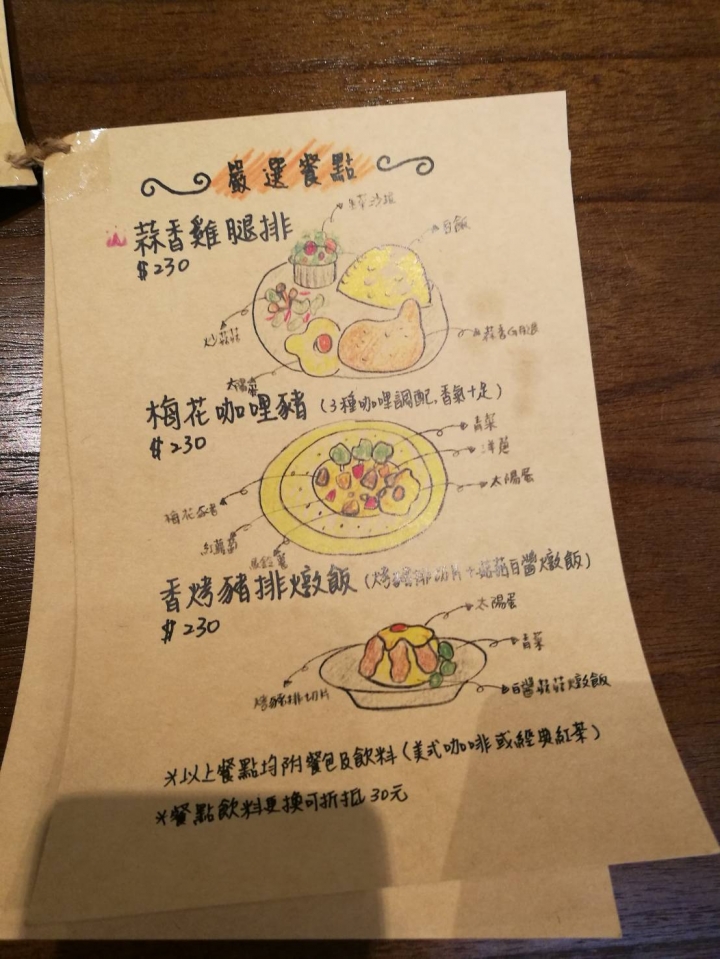 嚴選餐點
蒜香雞腿排
$230
生菜沙拉
白飯
炒菇菇
太陽蛋
蒜香雞腿
梅花咖哩豬 (3種咖哩調配,香氣十足)
$230
青菜
洋蔥
太陽蛋
梅花豬
紅蘿蔔
馬鈴薯
香烤豬排燉飯 (烤豬排切片+菇菇白醬燉飯)
$230
太陽蛋
青菜
烤豬排切片
白醬菇菇燉飯
※以上餐點均附餐包及飲料(美式咖啡或經典紅茶)
※餐點飲料更換可折抵30元